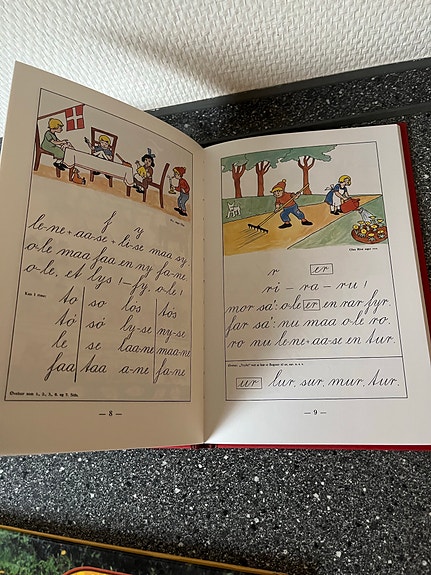 f y
le-ne + aa-se + li-se maa sy
o-le maa faa en ny fa-ne.
o-le, et lys! – fy, o-le!
Kan I mere:
to so lös tös
tó só ly-se ny-se
le se laa-ne maa-ne
faa taa a-ne fa-ne
— 8 —
r er
ri – ra – ru!
mor sa': o-le er en rar fyr.
far sa': nu maa o-le ro.
ro nu le-ne + aa-se en tur.
ur lur, sur, mur, tur.
— 9 —